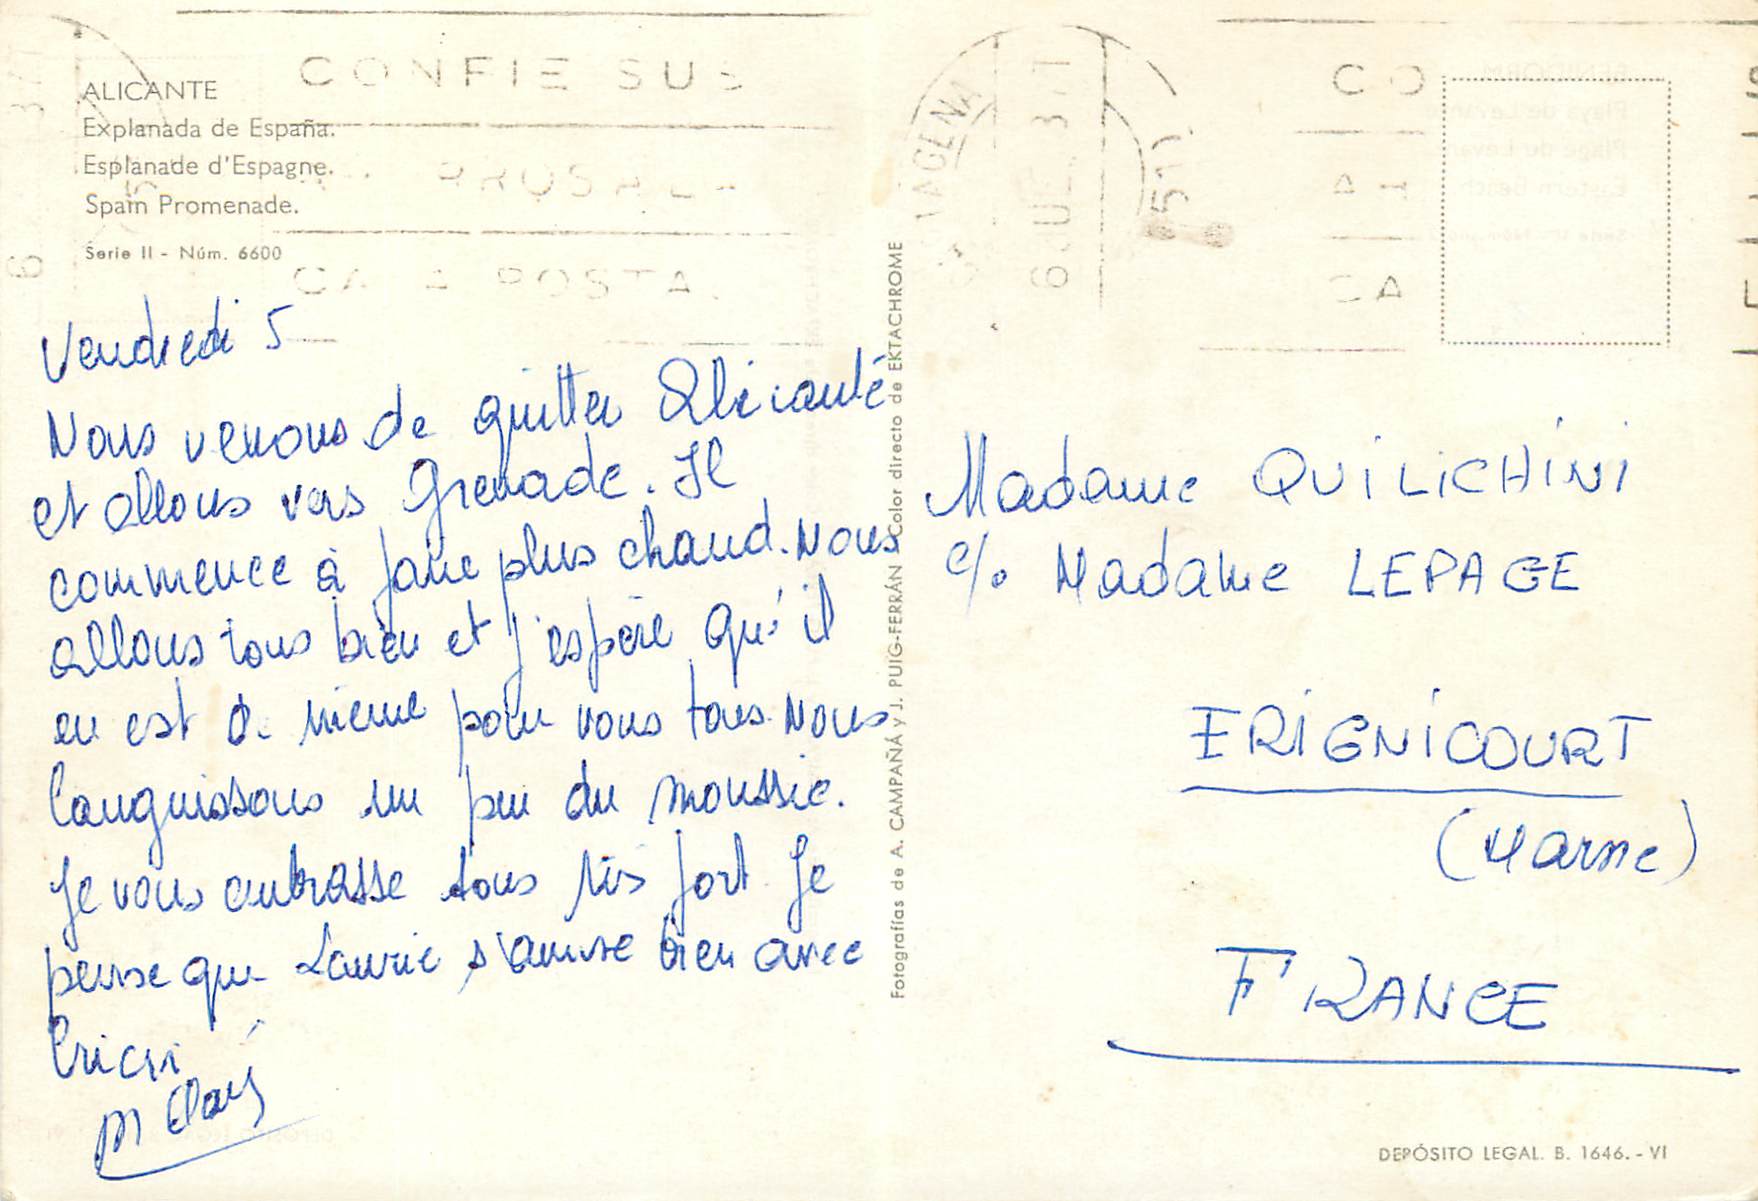 ALICANTE
Explanada de España.
Esplanade d'Espagne.
Spain Promenade.
Serie II - Núm. 6600
CONFIE SUS
CA POSTA
CARTAGENA
Vendredi 5
Nous venons de quitter Alicante
et allons vers Grenade. Il
commence à faire plus chaud. Nous
allons tous bien et j'espère qu'il
en est de même pour vous tous. Nous
languissons un peu du moussie.
Je vous embrasse tous très fort. Je
pense que Laurie s'amuse bien avec
M Clau
Fotografías de A. CAMPAÑÁ y J. PUIG-FERRÁN Color directo de EKTACHROME
Madame QUILICHINI
c/o Madame LEPAGE
FRIGNICOURT
(Marne)
FRANCE
DEPÓSITO LEGAL. B. 1646. - VI